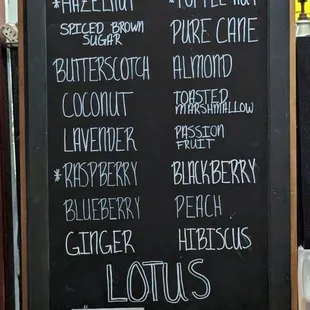 *HAZELNUT
SPICED BROWN
SUGAR
PURE CANE
BUTTERSCOTCH
ALMOND
COCONUT
TOASTED
MARSHMALLOW
LAVENDER
PASSION
FRUIT
*RASPBERRY
BLACKBERRY
BLUEBERRY
PEACH
GINGER
HIBISCUS
LOTUS